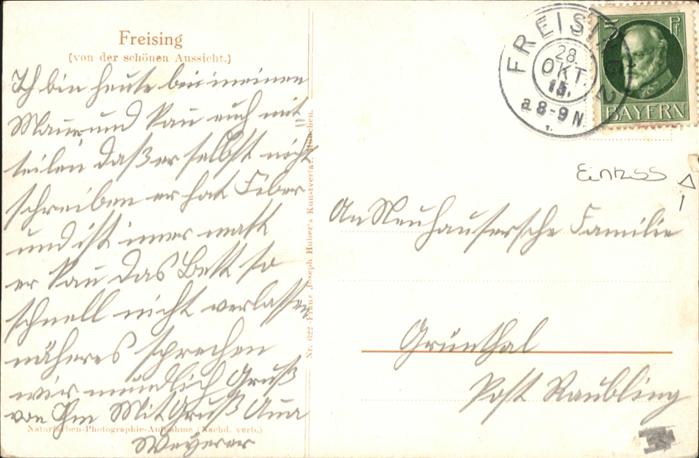 Freising
(von der schönen Aussicht.)
Ich bin heute bei meinen
Mann und kan euch mit=
teilen daß er selbst nicht
schreiben er hat Feber
und ist imer matt
er kan das Bett so
schnell nicht verlassen
näheres sprechen
wir mündlich Gruß
von Ihm Mit Gruß Anna
Weyerer
Naturfarben-Photographie-Aufnahme (Nachd. verb.)
Nr. 622 Franz Joseph Huber's Kunstverlag, München.
FREISING 2
28.
OKT.
15.
a 8-9 N.
5 Pf
BAYERN
An Neuhausersche Familie
Grünthal
Post Raubling